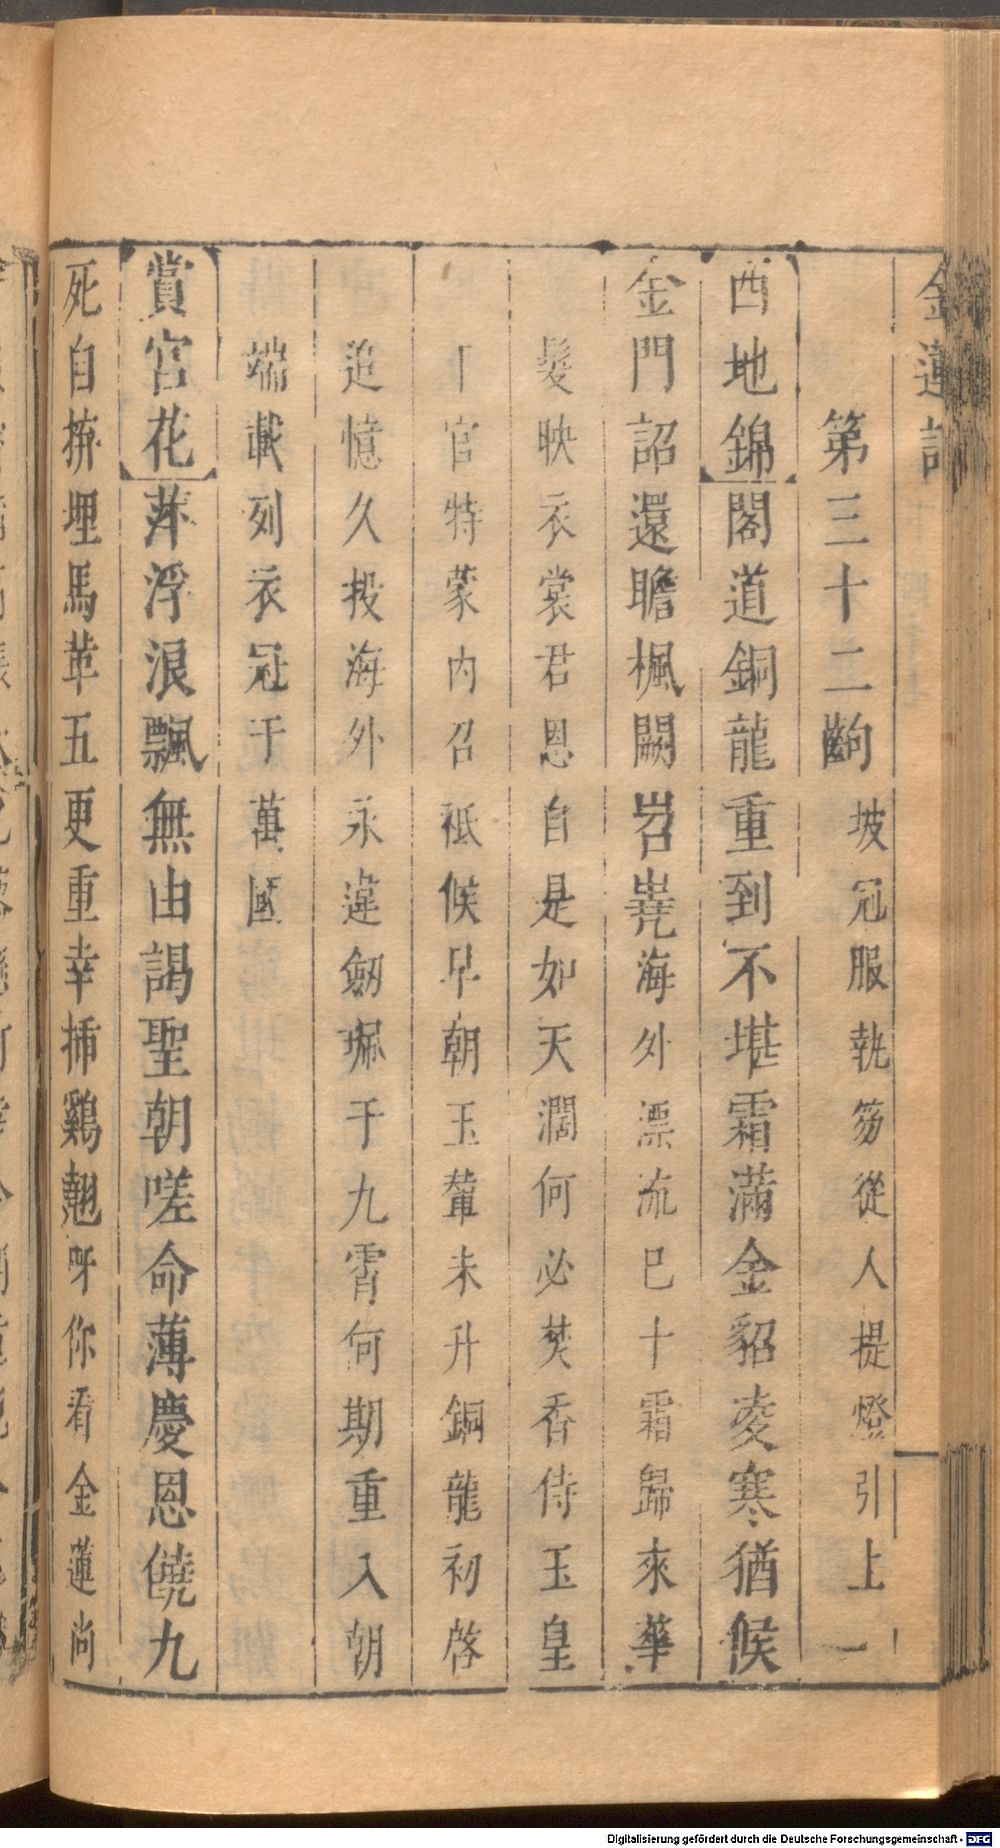 金蓮記
第三十二齣 坡冠服執笏從人提燈引上
西地錦 閣道銅龍重到不堪霜滿金貂凌寒猶候
金門詔還瞻楓闕岧嶤海外漂流巳十霜歸來華
髮映衣裳君恩自是如天濶何必焚香侍玉皇
下官特蒙内召祗候早朝玉輦未升銅龍初啓
追憶久投海外永違劒珮于九霄何期重入朝
端載列衣冠于萬國
賞宮花 萍浮浪飄無由謁聖朝嗟命薄慶恩饒九
死自拚埋馬革五更重幸揷鷄翹呀你看金蓮尚
Digitalisierung gefördert durch die Deutsche Forschungsgemeinschaft - DFG